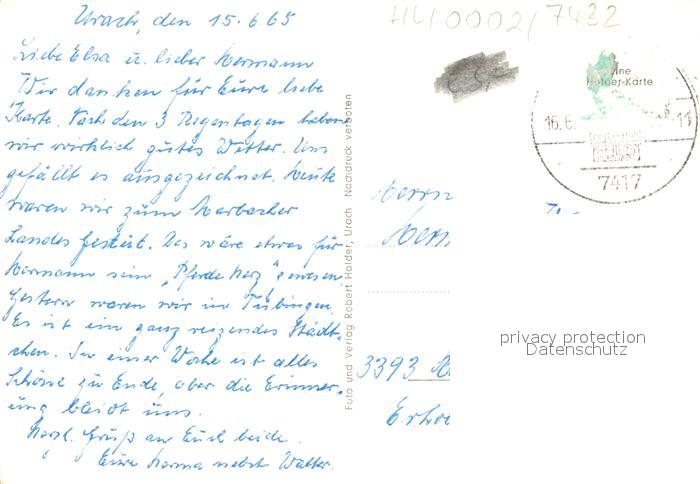 Urach, den 15.6.65
Liebe Elsa u. lieber Hermann
Wir danken für Eure liebe
Karte. Nach den 3 Regentagen haben
wir wirklich gutes Wetter. Uns
gefällt es ausgezeichnet. Heute
waren wir zum Marbacher
Landes Gestüt. Das wäre etwas für
Hermann sein „Pferde Herz" gewesen
Gestern waren wir in Tübingen.
Es ist ein ganz reizendes Städt-
chen. In einer Woche ist alles
Schöne zu Ende, aber die Erinner-
ung bleibt uns.
Herzl. Gruß an Euch beide.
Eure Herma nebst Walter.
Foto und Verlag Robert Holder, Urach Nachdruck verboten
7432
Eine
Holder-Karte
16.6.
11
7417
Herrn
3393
privacy protection
Datenschutz